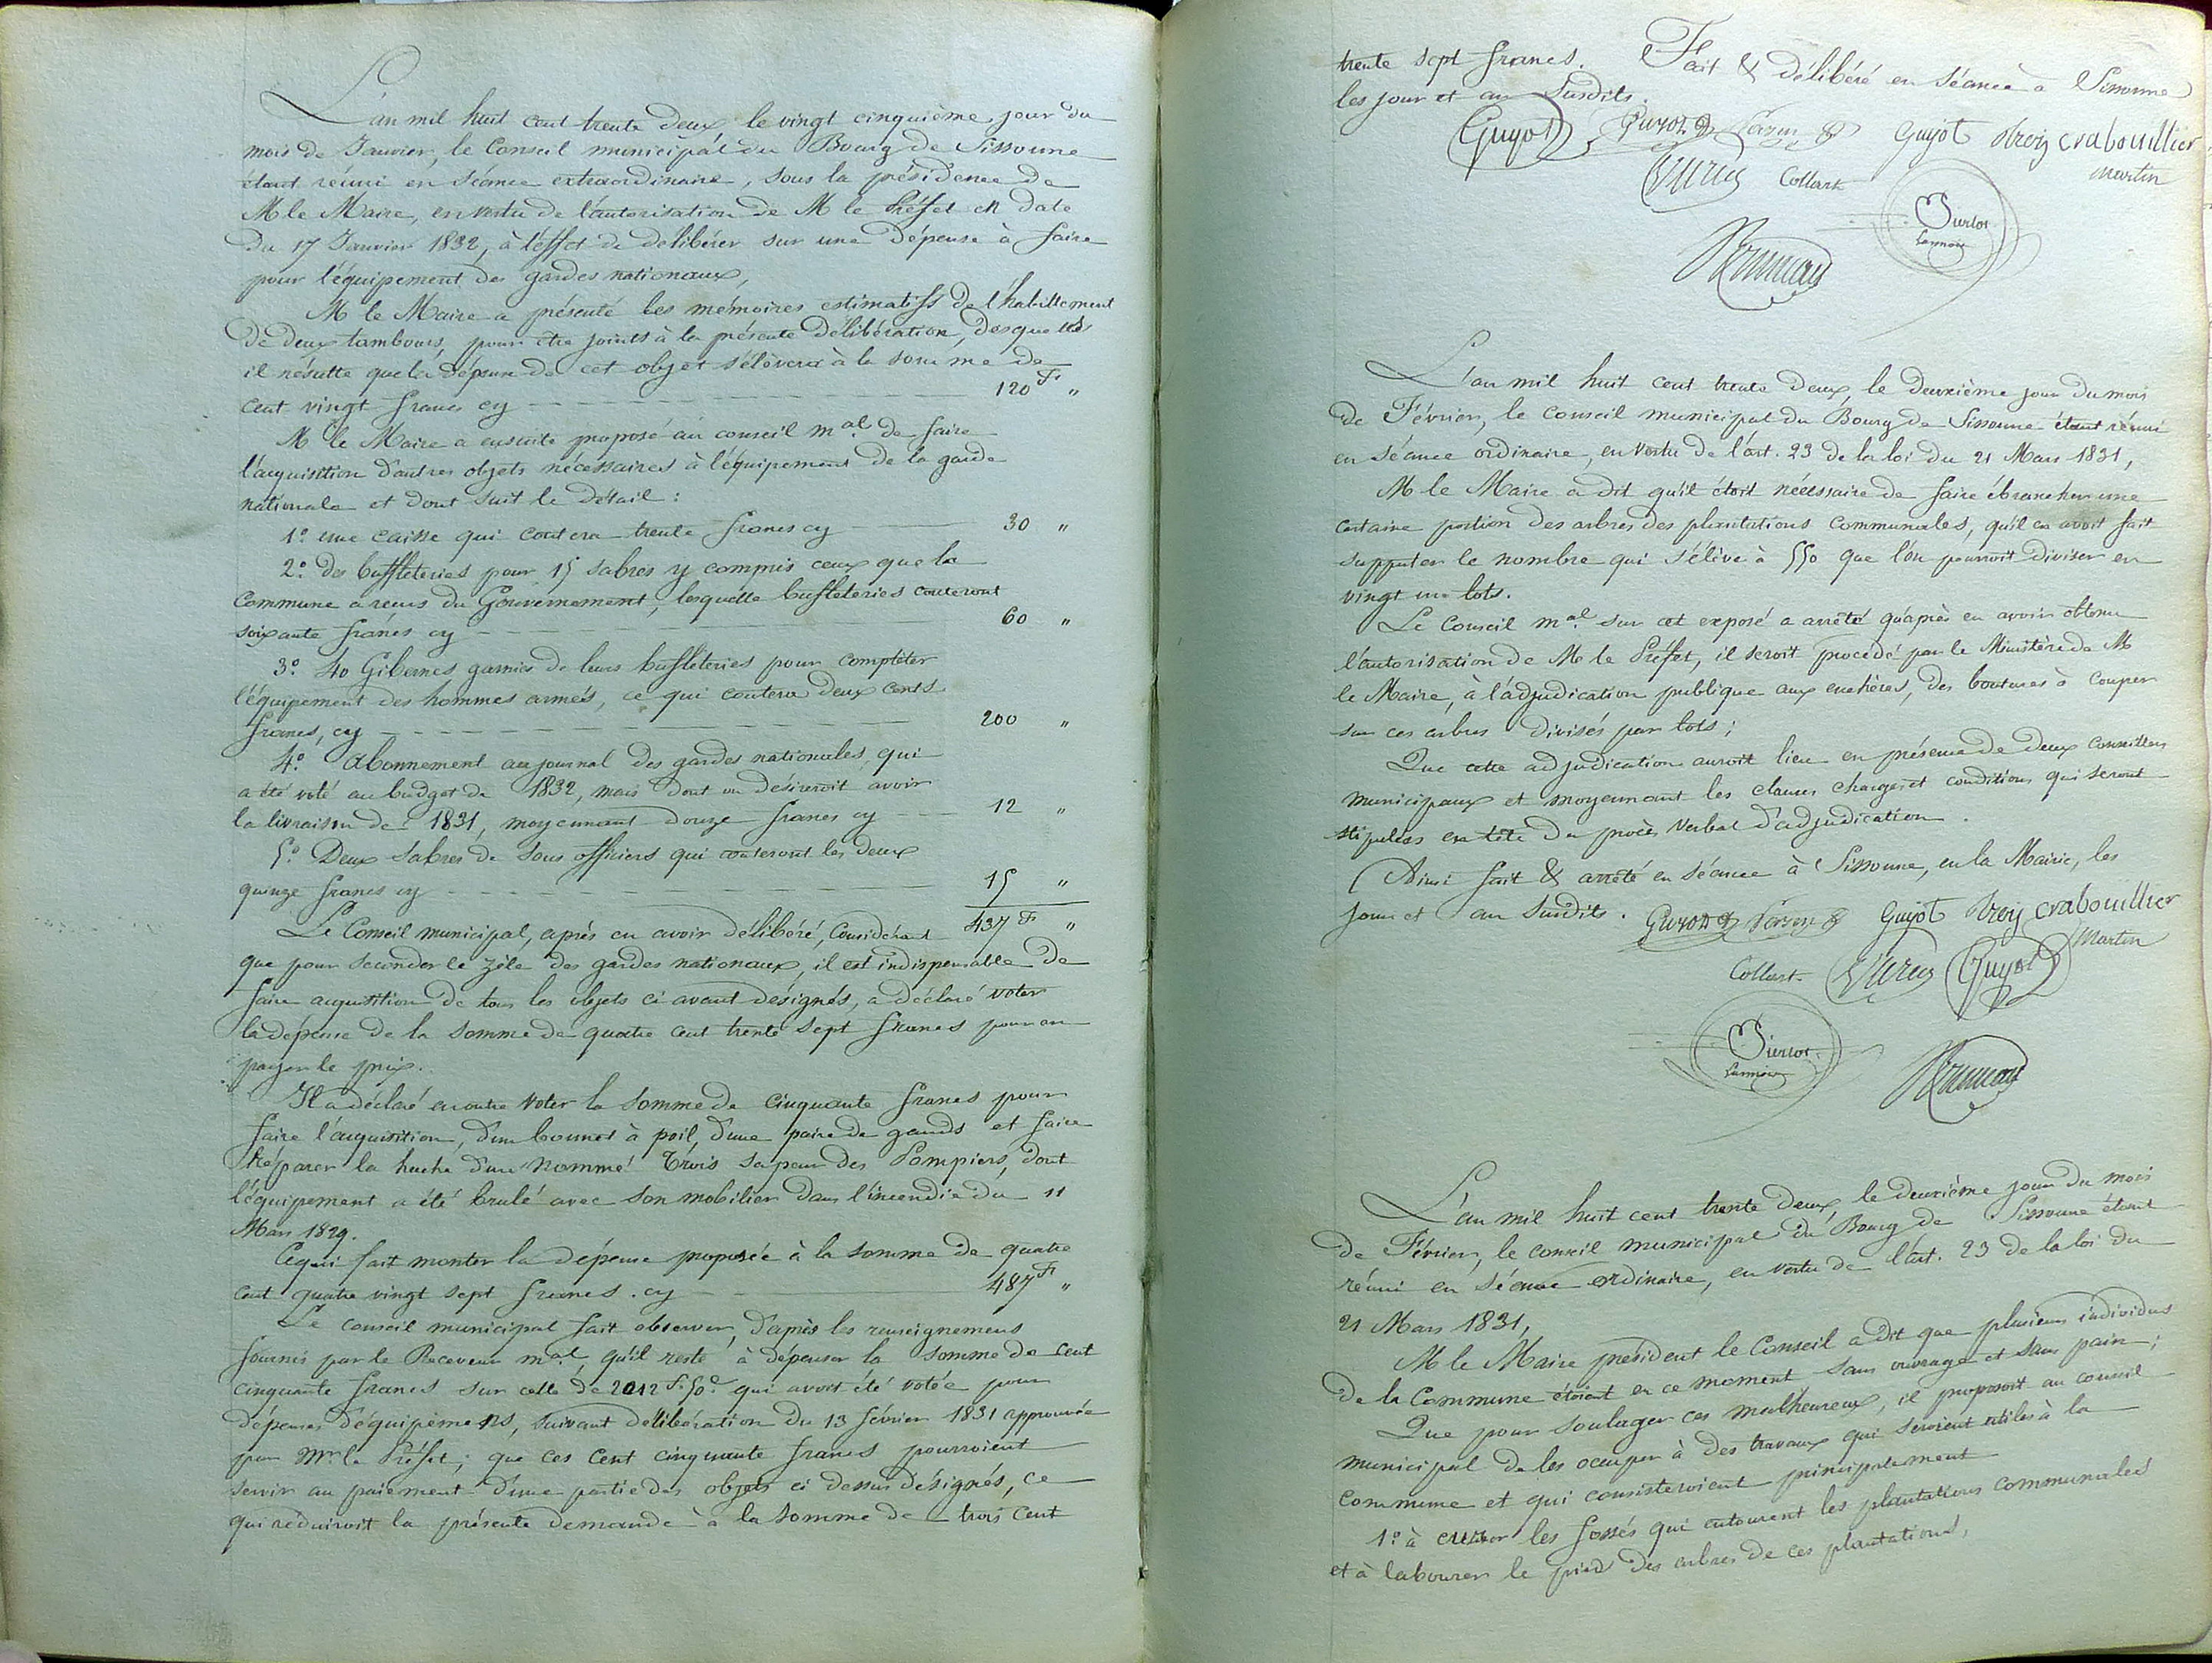 L'an mil huit cent trente deux, le vingt cinquième jour du
mois de Janvier, le Conseil municipal du Bourg de Sissonne
étant réuni en séance extraordinaire, sous la présidence de
M le Maire, en vertu de l'autorisation de M le Préfet en date
du 17 Janvier 1832, à l'effet de délibérer sur une dépense à faire
pour l'équipement des gardes nationaux,
M le Maire a présenté les mémoires estimatifs de l'habillement
de deux tambours, pour être joints à la présente délibération, desquels
il résulte que la dépense de cet objet s'élevera à la somme de
cent vingt francs cy 120 F "
M le Maire a ensuite proposé au conseil mal de faire
l'acquisition d'autres objets nécessaires à l'équipement de la garde
nationale et dont suit le détail :
1º une caisse qui coutera trente francs cy 30 "
2º des buffleteries pour 15 sabres y compris ceux que la
Commune a reçus du Gouvernement, lesquelles buffleteries couteront
soixante francs cy 60 "
3º 40 Gibernes garnies de leurs buffleteries pour completer
l'équipement des hommes armés, ce qui coutera deux cents
francs, cy 200 "
4º Abonnement au journal des gardes nationales, qui
a été voté au budget de 1832, mais dont on désireroit avoir
la livraison de 1831, moyennant douze francs cy 12 "
5º Deux sabres de sous officiers qui couteront les deux
quinze francs cy 15 "
Le Conseil municipal, après en avoir délibéré, Considérant 437 F "
que pour seconder le zèle des gardes nationaux, il est indispensable de
faire acquisition de tous les objets ci avant désignés, a déclaré voter
la dépense de la somme de quatre cent trente sept francs pour en
payer le prix.
Il a déclaré en outre voter la somme de cinquante francs pour
faire l'acquisition, d'un bonnet à poil, d'une paire de gands et faire
réparer la hache d'un nommé Trois sapeur des Pompiers, dont
l'équipement a été brulé avec son mobilier dans l'incendie du 11
Mars 1829.
Ce qui fait monter la dépense proposée à la somme de quatre
cent quatre vingt sept francs. cy 487 F "
Le conseil municipal fait observer, d'après les renseignemens
fournis par le Receveur mal, qu'il reste à dépenser la somme de cent
cinquante francs sur celle de 2012 f. 50 c qui avoit été votée pour
dépenses d'équipemens, suivant délibération du 13 février 1831 approuvée
par Mr le Préfet ; que ces cent cinquante francs pourroient
servir au paiement d'une partie des objets ci dessus désignés, ce
qui réduiroit la présente demande à la somme de trois cent
trente sept francs. Fait & délibéré en séance à Sissonne
les jour et an Susdits.
Guyot Guyot Guyot Crabouillier
Collart Martin
L'an mil huit cent trente deux, le deuxième jour du mois
de Février, le conseil municipal du Bourg de Sissonne étant réuni
en séance ordinaire, en vertu de l'art. 23 de la loi du 21 Mars 1831,
M le Maire a dit qu'il étoit nécessaire de faire ébrancher une
certaine portion des arbres des plantations communales, qu'il en avoit fait
supputer le nombre qui s'élève à 550 que l'on pourroit diviser en
vingt un lots.
Le Conseil mal sur cet exposé a arrêté qu'après en avoir obtenu
l'autorisation de M le Préfet, il seroit procédé par le Ministère de M
le Maire, à l'adjudication publique aux enchères, des boutures à couper
sur ces arbres divisés par lots ;
Que cette adjudication auroit lieu en présence de deux Conseillers
municipaux et moyennant les clauses charges et conditions qui seront
stipulées en tête du procès verbal d'adjudication.
Ainsi fait & arrêté en séance à Sissonne, en la Mairie, les
jour et an Susdits. Guyot Crabouillier
Martin
Collart Guyot
L'an mil huit cent trente deux, le deuxième jour du mois
de Février, le conseil municipal du Bourg de Sissonne étant
réuni en séance ordinaire, en vertu de l'art. 23 de la loi du
21 Mars 1831,
M le Maire président le Conseil a dit que plusieurs individus
de la Commune étoient en ce moment sans ouvrage et sans pain ;
Que pour soulager ces malheureux, il proposoit au conseil
municipal de les occuper à des travaux qui seroient utiles à la
Commune et qui consisteroient principalement
1º à curer les fossés qui entourent les plantations communales
et à labourer le pied des arbres de ces plantations,